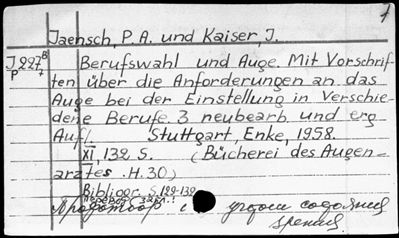 Jaensch, P. A. und Kaiser, J.
J 227 B
P 7
Berufswahl und Auge. Mit Vorschrif-
ten über die Anforderungen an das
Auge bei der Einstellung in Verschie-
dene Berufe. 3 neubearb. und erg
Aufl. Stuttgart, Enke, 1958.
XI, 132 S. (Bücherei des Augen-
arztes. H. 30)
Bibliogr. S. 129-132